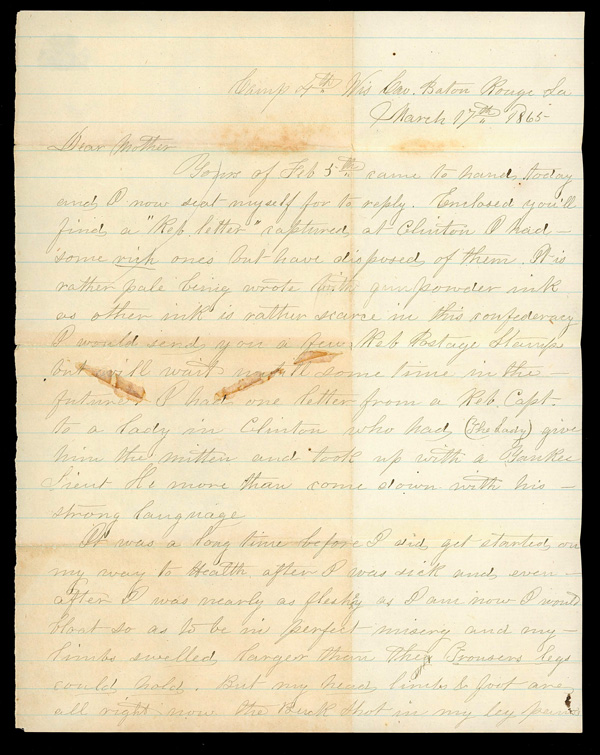 Camp 4th Wis Cav. Baton Rouge La
March 17th 1865
Dear Mother
Yours of Feb 5th came to hand today
and I now seat myself for to reply. Enclosed you'll
find a "Reb letter" captured at Clinton I had
some rich ones but have disposed of them. It is
rather pale being wrote with gun powder ink
as other ink is rather scarce in this confederacy
I would send you a few Reb Postage Stamps
but will wait untill some time in the
future I had one letter from a Reb. Capt.
to a lady in Clinton who had (The Lady) give
him the mitten and took up with a Yankee
Lieut He more than come down with his
strong language
It was a long time before I did get started on
my way to Health after I was sick and even
after I was nearly as fleshy as I am now I would
bloat so as to be in perfect misery and my
limbs swelled larger than the Trousers legs
could hold. But my head, limbs & foot are
all right now the Buck Shot in my leg